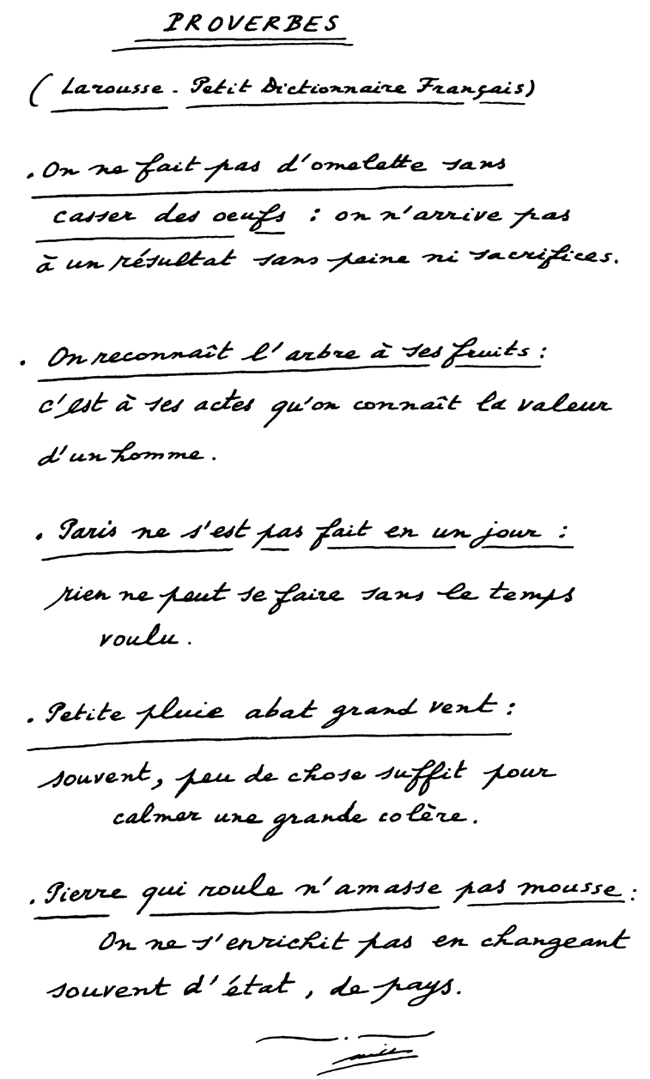 PROVERBES
(Larousse - Petit Dictionnaire Français)
. On ne fait pas d'omelette sans
casser des oeufs : on n'arrive pas
à un résultat sans peine ni sacrifices.
. On reconnaît l'arbre à ses fruits :
c'est à ses actes qu'on connaît la valeur
d'un homme.
. Paris ne s'est pas fait en un jour :
rien ne peut se faire sans le temps
voulu.
. Petite pluie abat grand vent :
souvent, peu de chose suffit pour
calmer une grande colère.
. Pierre qui roule n'amasse pas mousse :
On ne s'enrichit pas en changeant
souvent d'état, de pays.